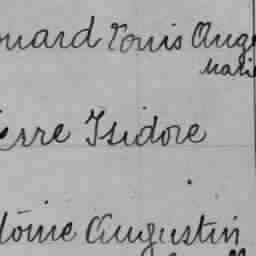 ouard Louis Auge
Marie
erre Isidore
toine Augustin